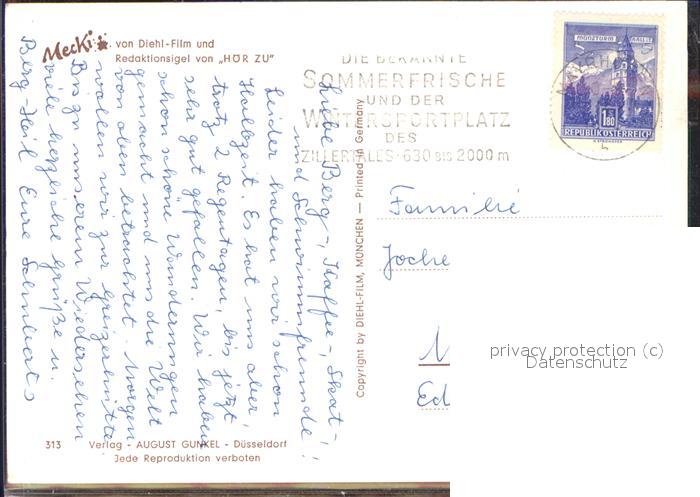 Mecki
von Diehl-Film und
Redaktionsigel von „HÖR ZU"
Liebe Berg-, Kaffee-, Skat-,
und Schwimmfreunde!
Leider haben wir schon
Halbzeit. Es hat uns aber,
trotz 2 Regentagen, bis jetzt
sehr gut gefallen. Wir haben
schon schöne Wanderungen
gemacht und uns die Welt
von oben betrachtet. Morgen
wollen wir zur Greizerhütte
Bis zu unserem Wiedersehen
viele herzliche Grüße u.
Berg-Heil Eure
313 Verlag - AUGUST GUNKEL - Düsseldorf
Jede Reproduktion verboten
Copyright by DIEHL-FILM, MÜNCHEN — Printed in Germany
DIE BEKANNTE
SOMMERFRISCHE
UND DER
WINTERSPORTPLATZ
DES
ZILLERTALES · 630 BIS 2000 m
MÜNZTURM HALL I. T.
1.80
REPUBLIK ÖSTERREICH
Familie
Joche
Ed
privacy protection (c)
Datenschutz